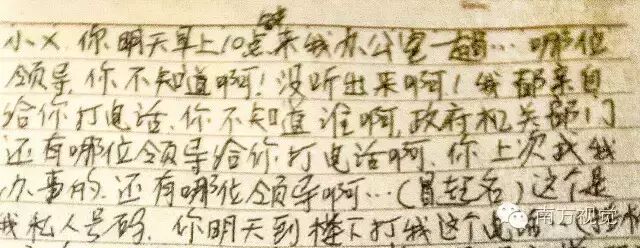 小X 你明天早上10点来我办公室一趟…哪位
领导,你不知道啊!没听出来啊!我都亲自
给你打电话,你不知道谁啊,政府机关部门
还有哪位领导给你打电话啊,你上次找我
办事的,还有哪位领导啊…(冒起名)这个是
我私人号码,你明天到楼下打我这个电话
南方视觉